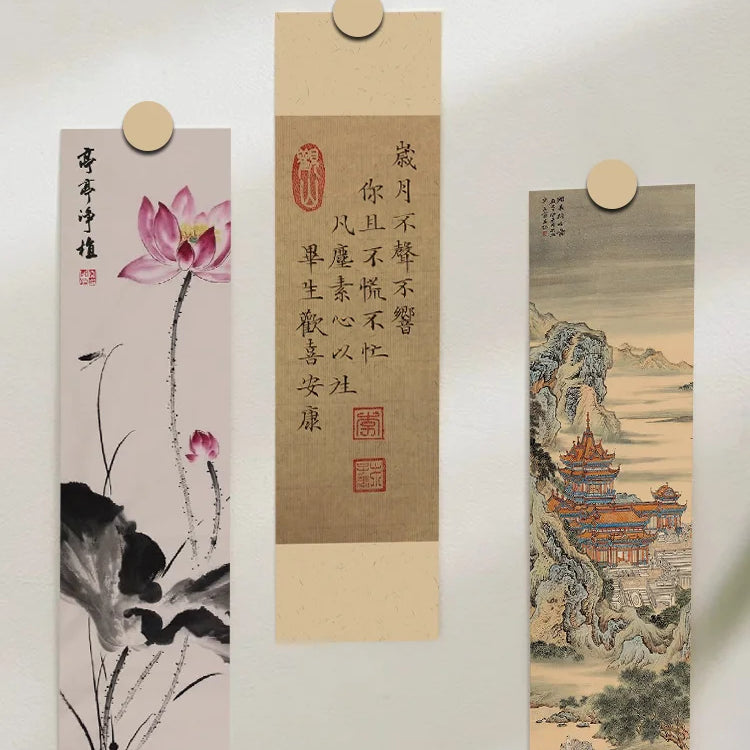 亭亭净植
歲月不聲不響
你且不慌不忙
凡塵素心以往
畢生歡喜安康